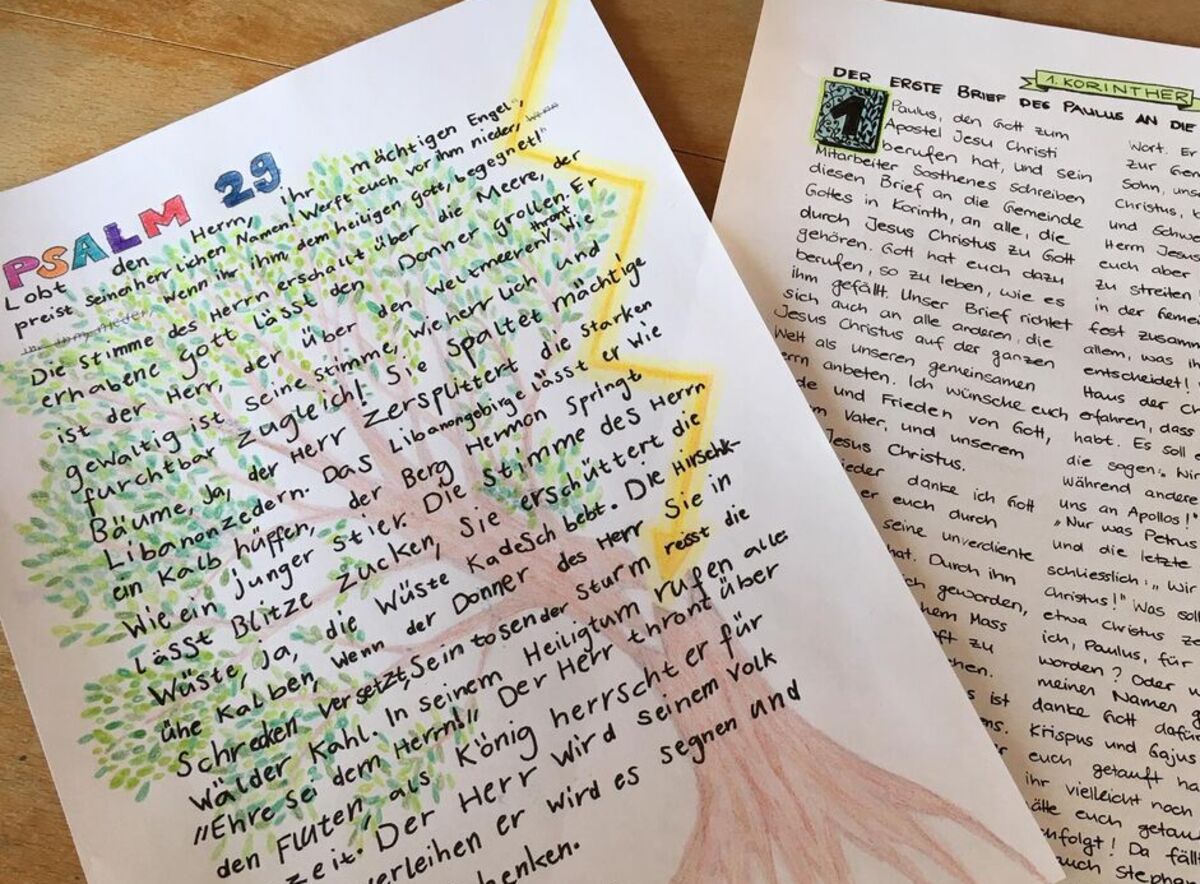 PSALM 29
Lobt den Herrn, ihr mächtigen Engel,
preist seinen herrlichen Namen! Werft euch vor ihm nieder,
wenn ihr ihm, dem heiligen Gott, begegnet!
Die Stimme des Herrn erschallt über die Meere, der
erhabene Gott lässt den Donner grollen. Er
ist der Herr, der über den Weltmeeren thront. Wie
gewaltig ist seine Stimme, wie herrlich und
furchtbar zugleich! Sie spaltet mächtige
Bäume, ja, der Herr zersplittert die starken
Libanonzedern. Das Libanongebirge lässt er wie
ein Kalb hüpfen, der Berg Hermon springt
wie ein junger Stier. Die Stimme des Herrn
lässt Blitze zucken, sie erschüttert die
Wüste, ja, die Wüste Kadesch bebt. Die Hirschk-
ühe Kalben, wenn der Donner des Herr sie in
Schrecken versetzt, Sein tosender Sturm reisst die
Wälder Kahl. In seinem Heiligtum rufen alle:
„Ehre sei dem Herrn!" Der Herr thront über
den Fluten, als König herrscht er für
zeit. Der Herr wird seinem Volk
verleihen er wird es segnen und
henken.
1. KORINTHER
DER ERSTE BRIEF DES PAULUS AN DIE
1
Paulus, den Gott zum
Apostel Jesu Christi
berufen hat, und sein
Mitarbeiter Sosthenes schreiben
diesen Brief an die Gemeinde
Gottes in Korinth, an alle, die
durch Jesus Christus zu Gott
gehören. Gott hat euch dazu
berufen, so zu leben, wie es
ihm gefällt. Unser Brief richtet
sich auch an alle anderen, die
Jesus Christus auf der ganzen
Welt als unseren gemeinsamen
errn anbeten. Ich wünsche euch
de und Frieden von Gott,
m Vater, und unserem
Jesus Christus.
ieder danke ich Gott
er euch durch
seine unverdiente
hat. Durch ihn
ch geworden,
hem Mass
ft zu
hen.
s ist
ens.
Wort. Er
zur Gem
Sohn, uns
Christus,
und Schwe
Herrn Jesus
euch aber
zu streiten
in der Gemei
fest zusamm
allem, was ih
entscheidet!
Haus der C
erfahren, dass
habt. Es soll e
die sagen: „Wir
während andere
uns an Apollos!"
„Nur was Petrus
und die letzte
schliesslich: „Wir
Christus!" Was sol
etwa Christus z
ich, Paulus, für
worden? Oder w
meinen Namen g
danke Gott dafü
Krispus und Gajus
euch getauft ha
ihr vielleicht noch
ätte euch getau
hfolgt! Da fäll
auch Stephan